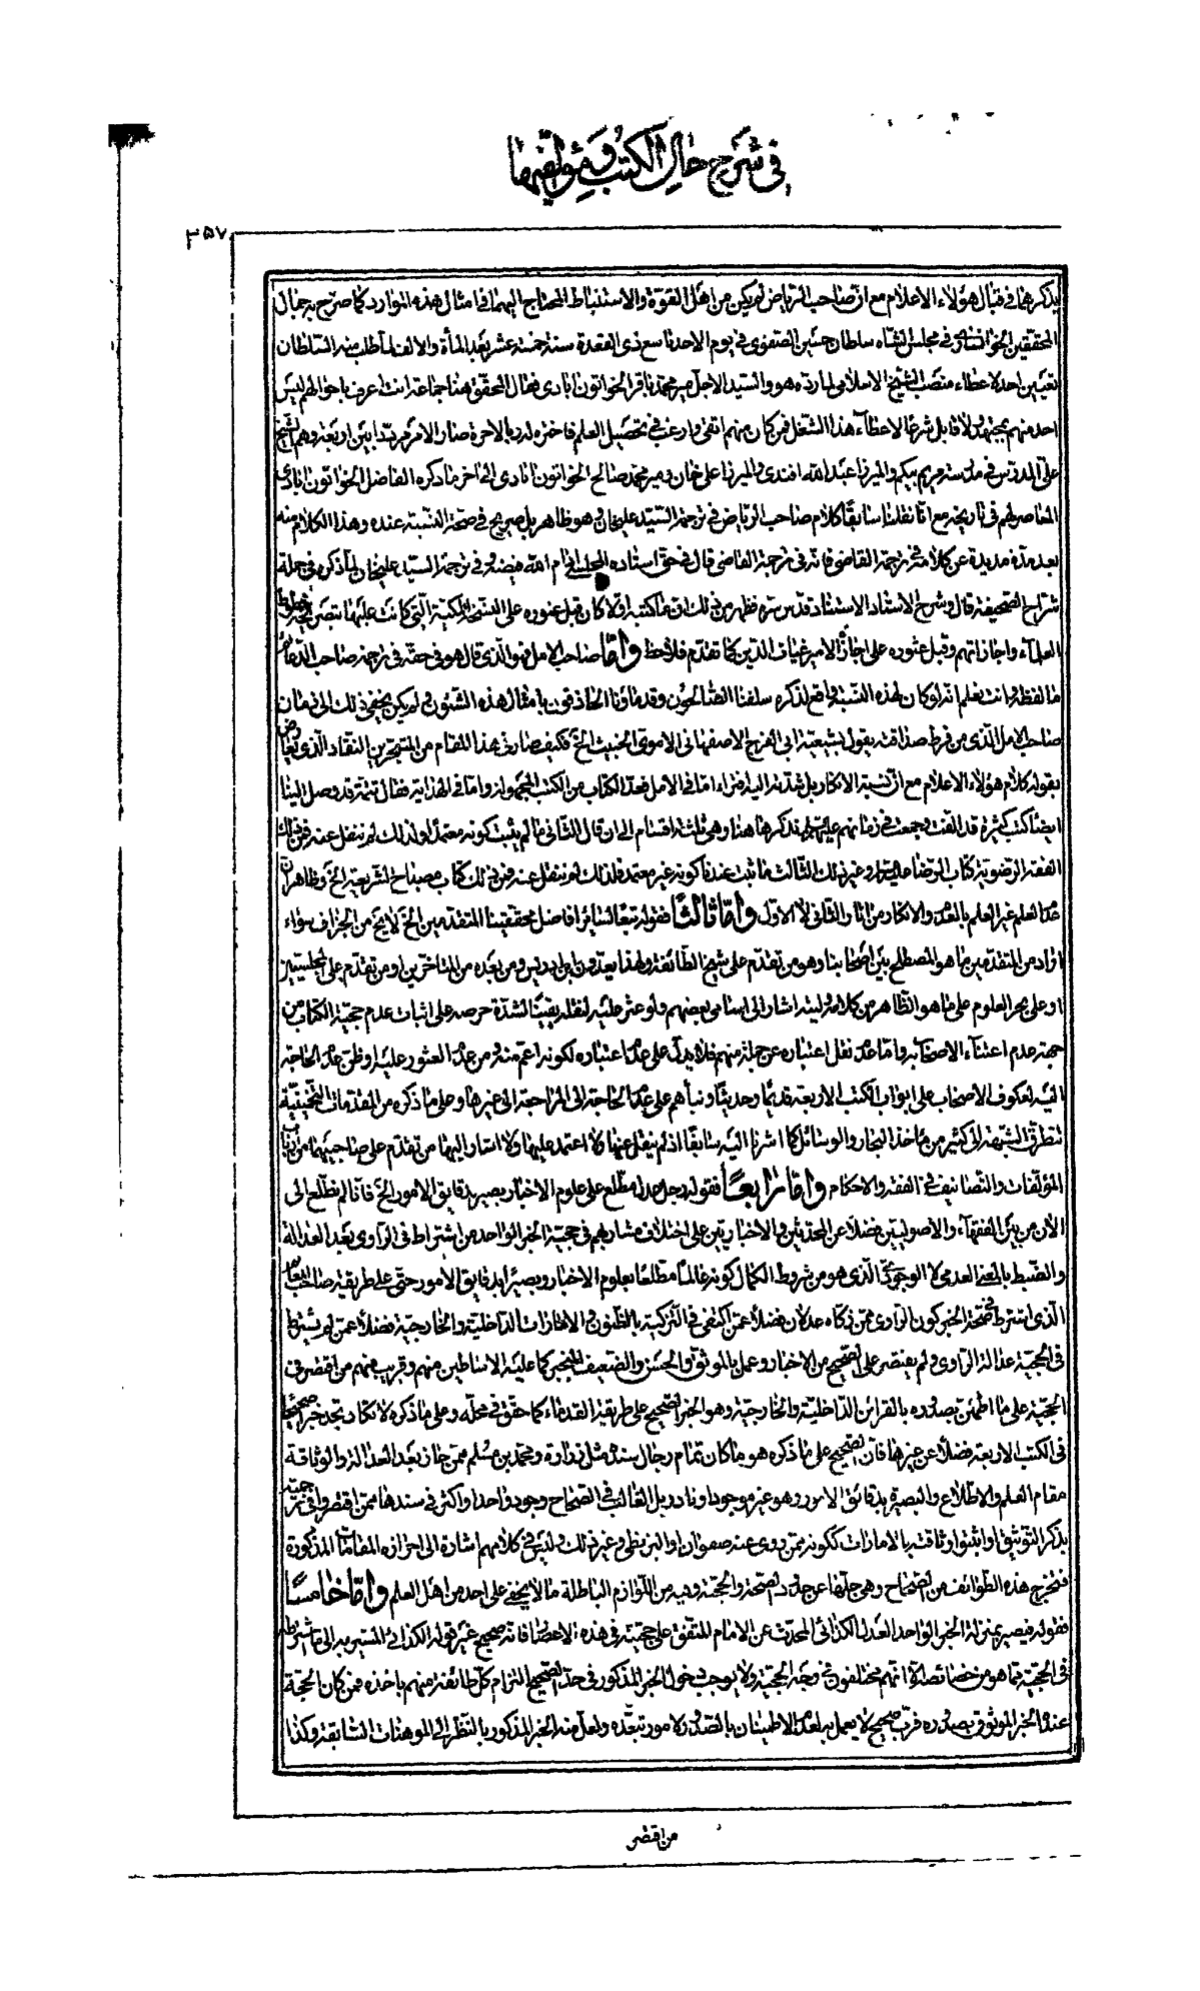 في شرح حال الكتب ومؤلفيها
٣٥٧
يذكرها في قبال هؤلاء الاعلام مع ان صاحب الرياض لم يكن من اهل القوة والاستنباط المحتاج اليهما في امثال هذه الموارد كما صرح به جمال
المحققين الخوانساري في مجلس الشاه سلطان حسين الصفوي في يوم الاحد تاسع ذي القعدة سنة خمسة عشر بعد المأة والالف لما طلب منه السلطان
تعيين احد لاعطاء منصب الشيخ الاسلامي لما رده هو والسيد الاجل مير محمد باقر الخواتون ابادي فقال المحقق هنا جماعة انت اعرف باحوالهم ليس
احد منهم مجتهد ولا قابل شرعا لاعطاء هذا الشغل فمن كان منهم اتقى وارغب في تحصيل العلم فاختره له وبالاخرة صار الامر مرددا بين اربعة وهم الشيخ
علي المدرس في مدرسة مريم بيكم والميرزا عبد الله افندي والميرزا علي خان ومير محمد صالح الخواتون ابادي الى اخر ما ذكره الفاضل الخواتون ابادي
المعاصر لهم في تاريخه مع انا نقلنا سابقا كلام صاحب الرياض في ترجمة السيد عليخان وهو ظاهر بل صريح في صحة النسبة عنده وهذا الكلام منه
بعد مدة مديدة عن كلامه في ترجمة القاضي فانه في ترجمة القاضي قال في حق استاده المجلسي ادام الله فيضه وفي ترجمة السيد عليخان لما ذكره في جملة
شراح الصحيفة قال وشرح الاستاد الاستناد قدس سره فظهر من ذلك ان ما كتبه اولا كان قبل عثوره على النسخة المكية التي كانت عليها بتصريحه خطوط
العلماء واجازاتهم وقبل عثوره على اجازة الامير غياث الدين كما تقدم فلاحظ واما صاحب الامل فهو الذي قال هو في حقه في ترجمة صاحب الدعائم
ما لفظه وانت تعلم انه لو كان لهذه النسبة واقع لذكره سلفنا الصالحون وقدماؤنا الحاذقون بامثال هذه الشئون ولم يكن يخفى ذلك الى زمان
صاحب الامل الذي من فرط صداقته يقول بشيعية ابي الفرج الاصفهاني الاموي الخبيث الخ فكيف صار في هذا المقام من المتبحرين النقاد الذي يعارض
بقوله كلام هؤلاء الاعلام مع ان نسبة الانكار بل شدته اليه افتراء اما في الامل فعد الكتاب من الكتب المجهولة واما في الهداية فقال تتمة قد وصل الينا
ايضا كتب كثيرة قد الفت وجمعت في زمانهم عليهم السلام نذكرها هنا وهي ثلثة اقسام الى ان قال الثاني ما لم يثبت كونه معتمدا ولذلك لم ننقل عنه فمن ذلك
الفقه الرضوي وكتاب الرضا عليه السلام وغير ذلك الثالث ما ثبت عندنا كونه غير معتمد فلذلك لم ننقل عنه فمن ذلك كتاب مصباح الشريعة الخ وظاهر ان
عدم العلم غير العلم بالعدم والانكار من اثار الثاني لا الاول واما ثالثا فقوله تبعا لسائر افاضل محققينا المتقدمين الخ لا يخ من الجزاف سواء
اراد من المتقدمين ما هو المصطلح بين اصحابنا وهو من تقدم على شيخ الطائفة ولهذا يعدون ابن ادريس ومن بعده من المتاخرين او من تقدم على المجلسيين
او على بحر العلوم على ما هو الظاهر من كلامه وليته اشار الى اسامي بعضهم ولو عثر عليه لنقله يقينا لشدة حرصه على اثبات عدم حجية الكتاب من
جهة عدم اعتناء الاصحاب به واما عدم نقل اعتباره عن جملة منهم فلا يدل على عدم اعتباره لكونه اعم منه ومن عدم العثور عليه او ظن عدم الحاجة
اليه لعكوف الاصحاب على ابواب الكتب الاربعة قديما وحديثا وبنائهم على عدم الحاجة الى المراجعة الى غيرها وعلى ما ذكره من المقدمات التخمينية
تتطرق الشبهة الى كثير من مآخذ البحار والوسائل كما اشرنا اليه سابقا اذ لم ينقل عنها ولا اعتمد عليها ولا اشار اليها من تقدم على صاحبيهما من ارباب
المؤلفات والتصانيف في الفقه والاحكام واما رابعا فقوله رجل عدل مطلع على علوم الاخبار بصير بدقايق الامور الخ فانا لم نطلع الى
الان من بين الفقهاء والاصوليين فضلا عن المحدثين والاخباريين على اختلاف مشاربهم في حجية الخبر الواحد من اشترط في الراوي بعد العدالة
والضبط بالمعنى العدمي لا الوجودي الذي هو من شروط الكمال كونه عالما مطلعا بعلوم الاخبار وبصيرا بدقايق الامور حتى على طريقة صاحب المعالم
الذي اشترط في صحة الخبر كون الراوي ممن زكاه عدلان فضلا عمن اكتفى في التزكية بالظنون والامارات الداخلية والخارجية فضلا عمن لم يشترط
في الحجية عدالة الراوي ولم يقتصر على الصحيح من الاخبار وعمل بالموثق والحسن والضعيف المنجبر كما عليه الاساطين منهم وقريب منهم من اقتصر في
الحجية على ما اطمئن بصدوره بالقرائن الداخلية والخارجية وهو الخبر الصحيح على طريقة القدماء كما حقق في محله وعلى ما ذكره لا نكاد نجد خبرا صحيحا
في الكتب الاربعة فضلا عن غيرها فان الصحيح على ما ذكره هو ما كان تمام رجال سنده مثل زرارة ومحمد بن مسلم ممن حاز بعد العدالة والوثاقة
مقام العلم والاطلاع والبصيرة بدقائق الامور وهو غير موجود او نادر بل الغالب في الصحاح وجود واحد او اكثر في سندها ممن اقتصروا في ترجمته
بذكر التوثيق او اثبتوا وثاقته بالامارات ككونه ممن روى عنه صفوان او البزنطي او غير ذلك وليس في كلامهم اشارة الى احرازه المقامات المذكورة
فتخرج هذه الطوائف من الصحاح وهي جلها عن حدود الصحة والحجة وفيه من اللوازم الباطلة ما لا يخفى على احد من اهل العلم واما خامسا
فقوله فيصير بمنزلة الخبر الواحد العدل الكذائي المحدث عن الامام المتفق على حجيته في هذه الاعصار فانه صحيح غير قوله الكذائي المشير به الى ما اشترطه
في الحجية مما هو من خصائصه الا انهم مختلفون في وجه الحجية ولا يوجب دخول الخبر المذكور في حد الصحيح التزام كل طائفة منهم باخذه فمن كان الحجة
عنده الخبر الموثوق بصدوره فرب صحيح لا يعمل به لعدم الاطمينان بالصدور لامور تبعده ولعل منه الخبر المذكور بالنظر الى الموهنات السابقة وكذا
من اقتصر